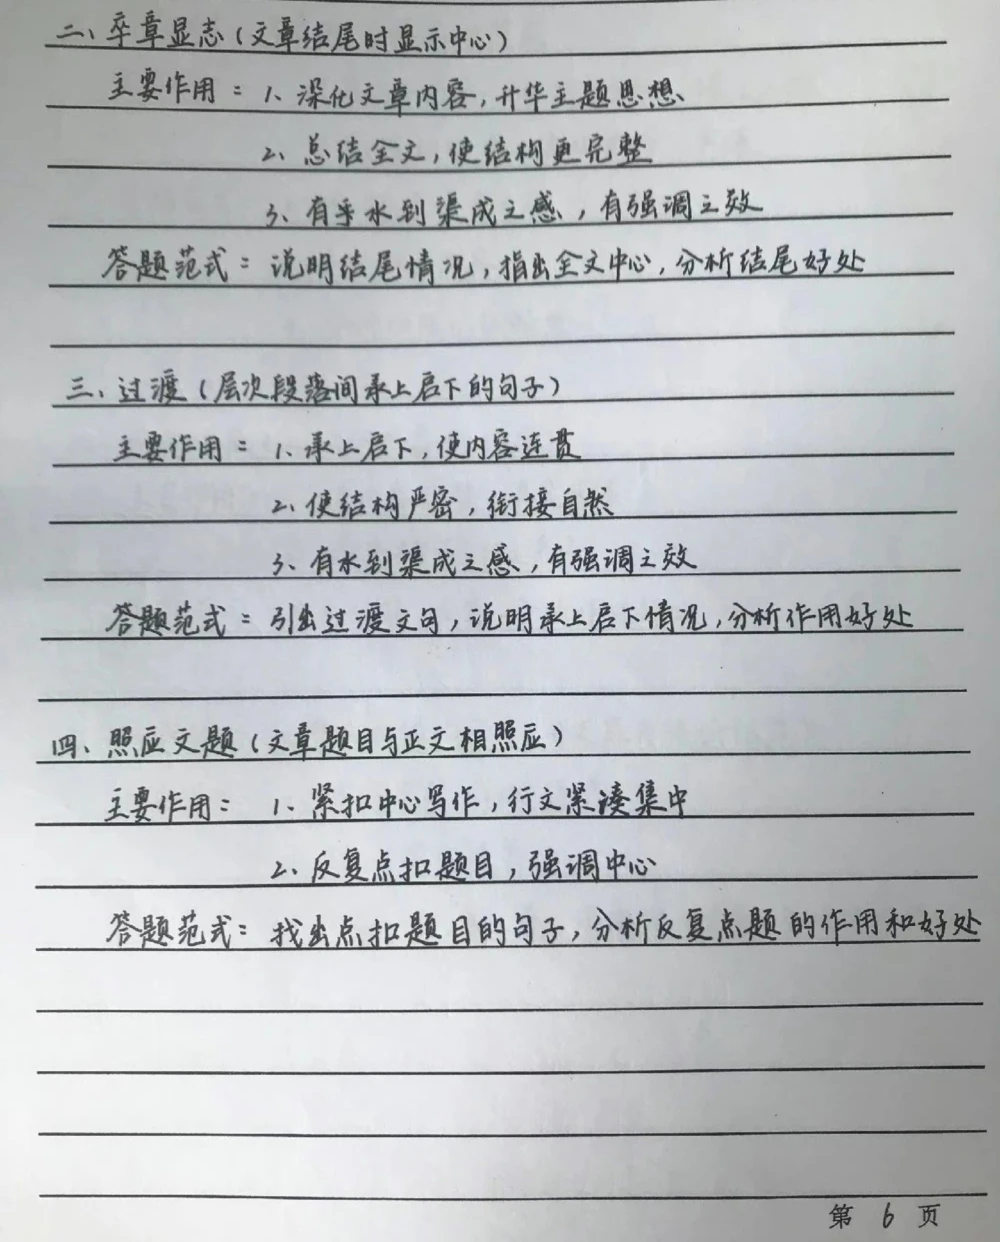 二、卒章显志(文章结尾时显示中心)
主要作用：1、深化文章内容，升华主题思想
2、总结全文，使结构更完整
3、有乎水到渠成之感，有强调之效
答题范式：说明结尾情况，指出全文中心，分析结尾好处
三、过渡(层次段落间承上启下的句子)
主要作用：1、承上启下，使内容连贯
2、使结构严密，衔接自然
3、有水到渠成之感，有强调之效
答题范式：引出过渡文句，说明承上启下情况，分析作用好处
四、照应文题(文章题目与正文相照应)
主要作用：1、紧扣中心写作，行文紧凑集中
2、反复点扣题目，强调中心
答题范式：找出点扣题目的句子，分析反复点题的作用和好处
第 6 页